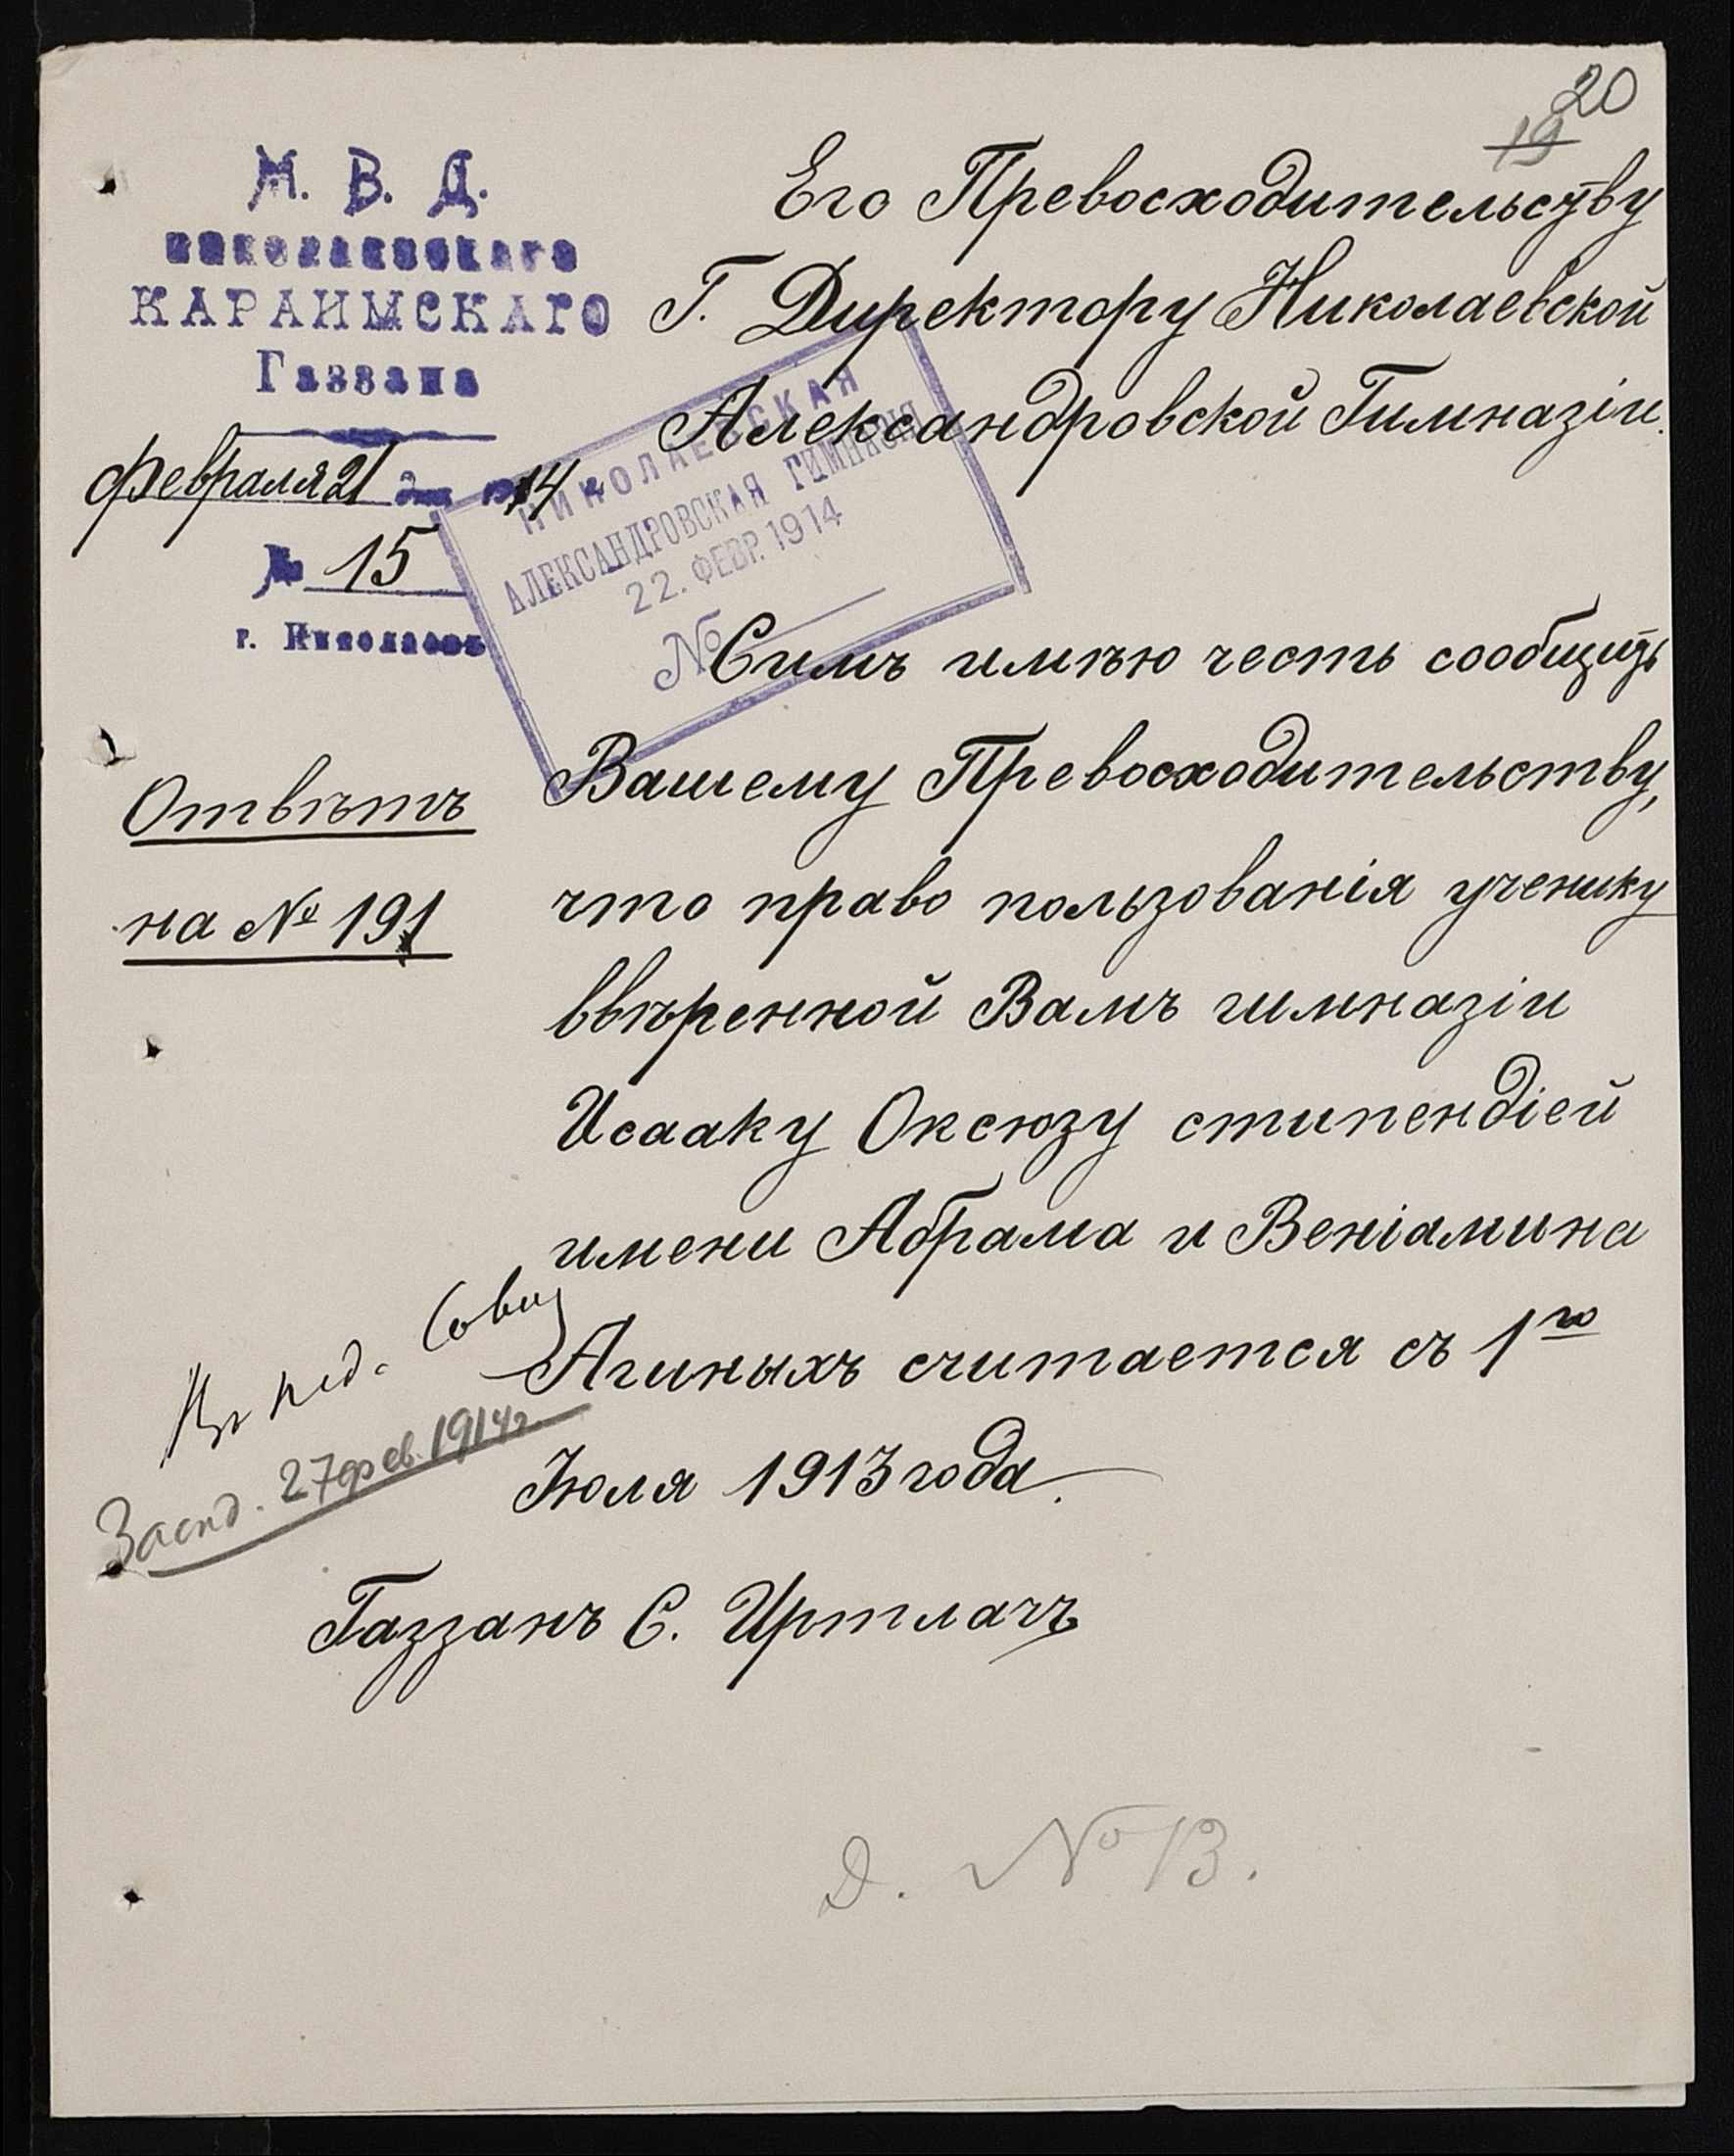 20
19
М. В. Д.
Николаевскаго
КАРАИМСКАГО
Газзана
Февраля 21 дня 1914 г.
№ 15
г. Николаевъ
Его Превосходительству
Г. Директору Николаевской
Александровской Гимназіи.
НИКОЛАЕВСКАЯ
АЛЕКСАНДРОВСКАЯ ГИМНАЗІЯ
22. ФЕВР. 1914
№
Отвѣтъ
на № 191
Симъ имѣю честь сообщить
Вашему Превосходительству,
что право пользованія ученику
ввѣренной Вамъ гимназіи
Исааку Оксюзу стипендіей
имени Абрама и Веніамина
Агиныхъ считается съ 1го
Іюля 1913 года.
Въ пед. Совѣт
Засѣд. 27 фев. 1914 г.
Газзанъ С. Иртлачъ
Д. № 13.